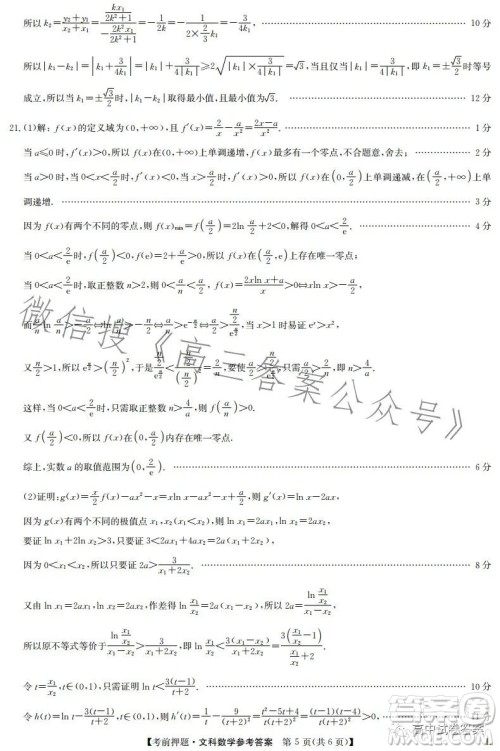 所以 k₂=(y₂+y₁)/(x₂+x₁)=(kx₁/(2k²+1))/(-2k²x₁/(2k²+1))=-1/(2k)=-1/(2×(2/3)k₁)=-3/(4k₁), 10 分
所以|k₁-k₂|=|k₁+3/(4k₁)|=|k₁|+3/(4|k₁|)≥2√(|k₁|×3/(4|k₁|))=√3,当且仅当|k₁|=3/(4|k₁|),即 k₁=±√3/2时等号
成立,所以当 k₁=±√3/2时,|k₁-k₂|取得最小值,且最小值为√3. 12 分
21.(1)解:f(x)的定义域为(0,+∞),且 f′(x)=2/x-a/x²=(2x-a)/x². 1 分
当 a≤0时,f′(x)>0,所以 f(x)在(0,+∞)上单调递增,f(x)最多有一个零点,不合题意. 2 分
当 a>0时,当0<x<a/2时,f′(x)<0;当 x>a/2时,f′(x)>0,所以 f(x)在(0,a/2)上单调递减,在(a/2,+∞)上单
调递增. 3 分
因为 f(x)有两个不同的零点,则 f(x)min=f(a/2)=2ln a/2+2<0,解得0<a<2/e. 4 分
当0<a<2/e时,f(a/2)<0,f(e)=2+a/e>0,所以 f(x)在(a/2,e)上存在唯一零点;
当0<a<2/e时,取正整数 n>2,则0<a/n<a/2,f(x)=(2xln x+a)/x>0⇔xln x>-a/2.
又 n/2>1,所以
这样,当0<a<2/e时,只需取正整数 n>4/a,则 f(a/n)>0.
又 f(a/2)<0,所以 f(x)在(0,a/2)内存在唯一零点.
综上,实数 a 的取值范围为(0,2/e). 6 分
(2)证明:g(x)=x/2 f(x)-ax²-x=xln x-ax²-x+a/2,则 g′(x)=ln x-2ax,
因为 g(x)有两个不同的极值点 x₁,x₂(x₁<x₂),则 ln x₁=2ax₁,ln x₂=2ax₂,
要证 ln x₁+2ln x₂>3,即证2ax₁+4ax₂>3.
因为0<x₁<x₂,所以只要证2a>3/(x₁+2x₂). 8 分
又由 ln x₁=2ax₁,ln x₂=2ax₂,作差得 ln x₁/x₂=2a(x₁-x₂),所以2a=(ln x₁/x₂)/(x₁-x₂),
所以原不等式等价于(ln x₁/x₂)/(x₁-x₂)>3/(x₁+2x₂),即 ln x₁/x₂<3(x₁-x₂)/(x₁+2x₂)=3(x₁/x₂-1)/(x₁/x₂+2).
令 t=x₁/x₂,t∈(0,1),只需证明 ln t<3(t-1)/(t+2),t∈(0,1). 10 分
令 h(t)=ln t-3(t-1)/(t+2),t∈(0,1),则 h′(t)=1/t-9/(t+2)²=(t²-5t+4)/(t(t+2)²)=(t-1)(t-4)/(t(t+2)²)>0,
【考前押题·文科数学参考答案 第 5 页(共 6 页)】
微信搜《高三答案公众号》
高中试卷答案